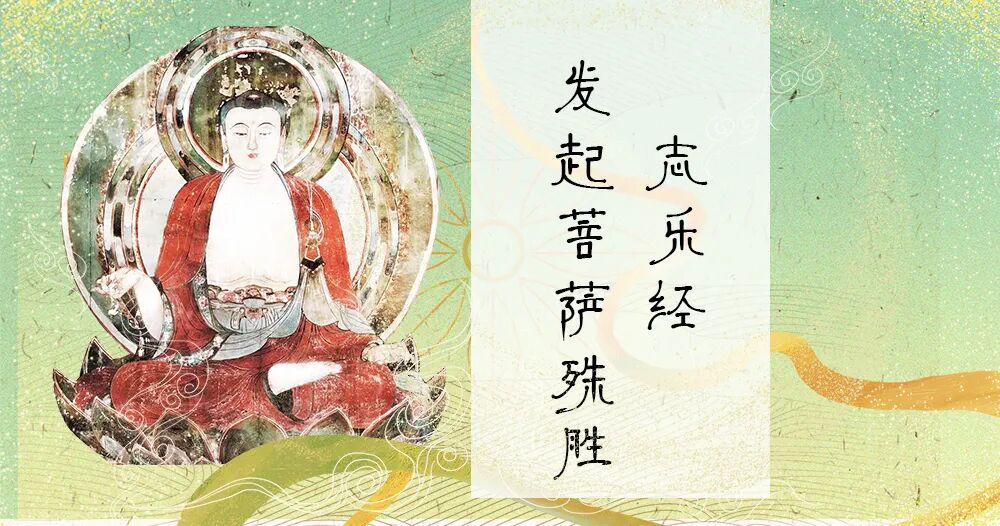 发起菩萨殊胜
志乐经